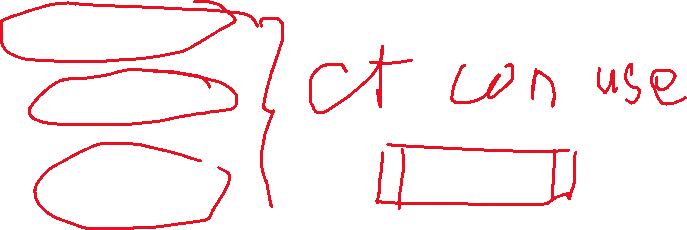 ct can use